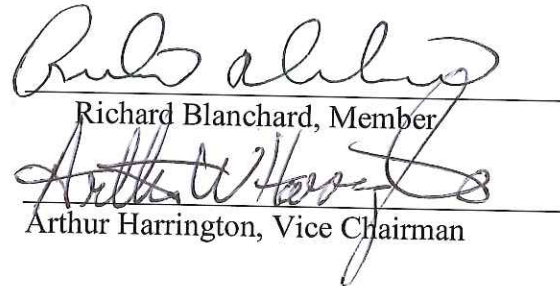 Richard Blanchard, Member
Arthur W Harrington
Arthur Harrington, Vice Chairman